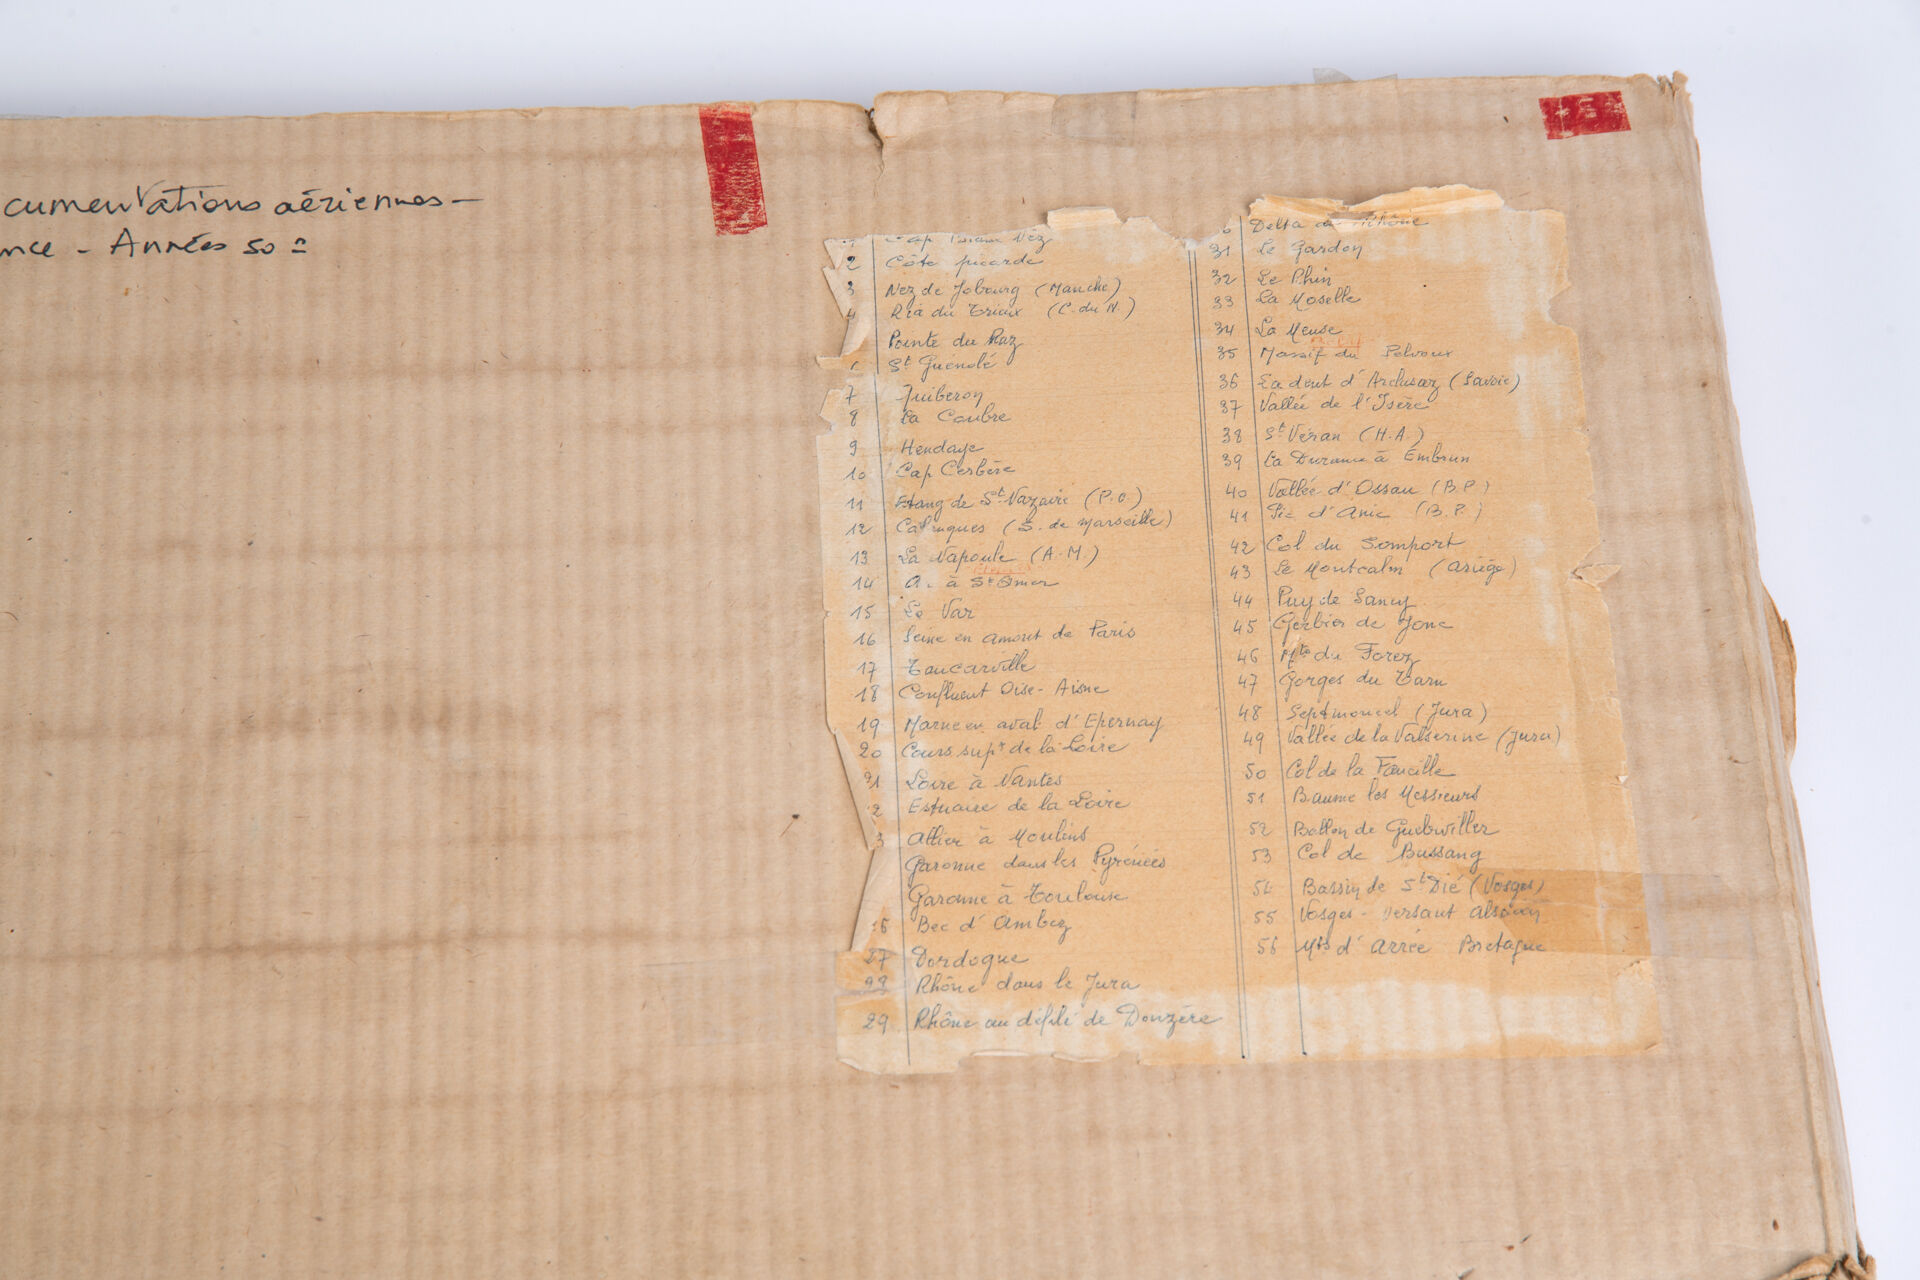 cumentations aériennes -
nce - Années 50 =
Cap Blanc Nez
2 Côte picarde
3 Nez de Jobourg (Manche)
4 Ria du Trieux (C. du N.)
Pointe du Raz
St Guénolé
7 Quiberon
8 La Coubre
9 Hendaye
10 Cap Cerbère
11 Etang de St Nazaire (P.O)
12 Calanques (S. de Marseille)
13 La Napoule (A.M.)
14 à St Omer
15 Le Var
16 Seine en amont de Paris
17 Tancarville
18 Confluent Oise - Aisne
19 Marne en aval d'Epernay
20 Cours supr de la Loire
21 Loire à Nantes
2 Estuaire de la Loire
3 Allier à Moulins
Garonne dans les Pyrénées
Garonne à Toulouse
6 Bec d'Ambez
27 Dordogne
28 Rhône dans le Jura
29 Rhône au défilé de Donzère
0 Delta du Rhône
31 Le Gardon
32 Le Rhin
33 La Moselle
34 La Meuse
35 Massif du Pelvoux
36 La dent d'Arclusaz (Savoie)
37 Vallée de l'Isère
38 St Véran (H.A.)
39 La Durance à Embrun
40 Vallée d'Ossau (B.P.)
41 Pic d'Anie (B.P.)
42 Col du Somport
43 Le Montcalm (Ariège)
44 Puy de Sancy
45 Gerbier de Jonc
46 Mts du Forez
47 Gorges du Tarn
48 Septmoncel (Jura)
49 Vallée de la Valserine (Jura)
50 Col de la Faucille
51 Baume les Messieurs
52 Ballon de Guebwiller
53 Col de Bussang
54 Bassin de St Dié (Vosges)
55 Vosges - versant alsacien
56 Mts d'Arrée Bretagne